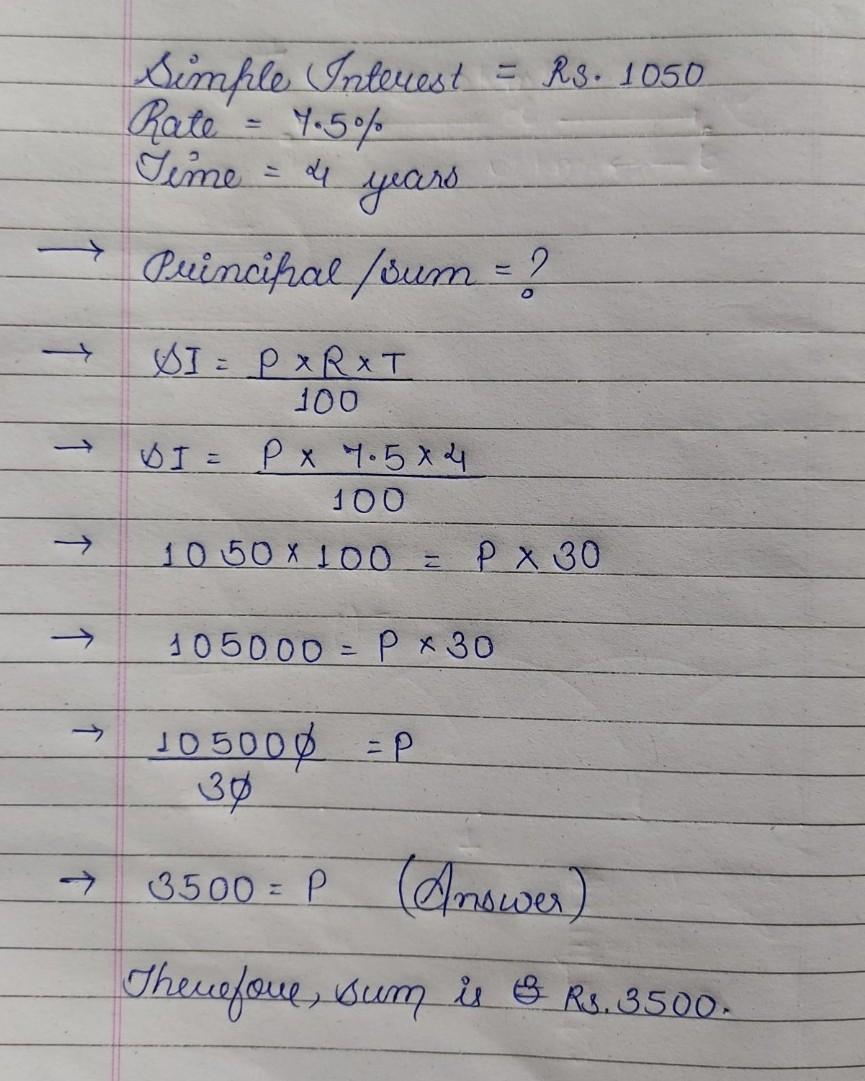 Simple Interest = Rs. 1050
Rate = 7.5%
Time = 4 years
→ Principal /sum = ?
→ SI = P × R × T
100
→ SI = P × 7.5 × 4
100
→ 1050 × 100 = P × 30
→ 105000 = P × 30
→ 105000 = P
30
→ 3500 = P (Answer)
Therefore, sum is Rs. 3500.